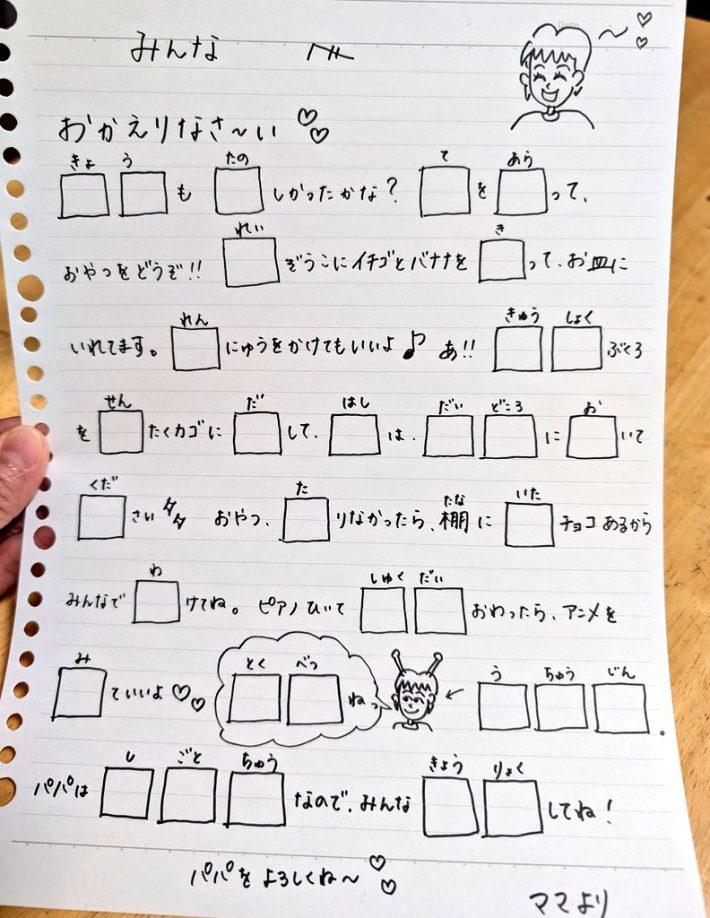 Date
みんな へ
おかえりなさ〜い♡♡
きょ う たの て あら
□□も□しかったかな? □を□って、
れい き
おやつをどうぞ!! □ぞうこにイチゴとバナナを□って、お皿に
れん きゅう しょく
いれてます。□にゅうをかけてもいいよ♪ あ!! □□ぶくろ
せん だ はし だい どころ お
を□たくカゴに□して、□は、□□に□いて
くだ た たな いた
□さい タタ おやつ、□りなかったら、棚に□チョコあるから
わ しゅく だい
みんなで□けてね。ピアノひいて□□おわったら、アニメを
み とく べつ う ちゅう じん
□ていいよ♡♡ □□ねっ ← □□□.
し ごと ちゅう きょう りょく
パパは□□□なので、みんな□□してね!
パパをよろしくね〜♡♡
ママより